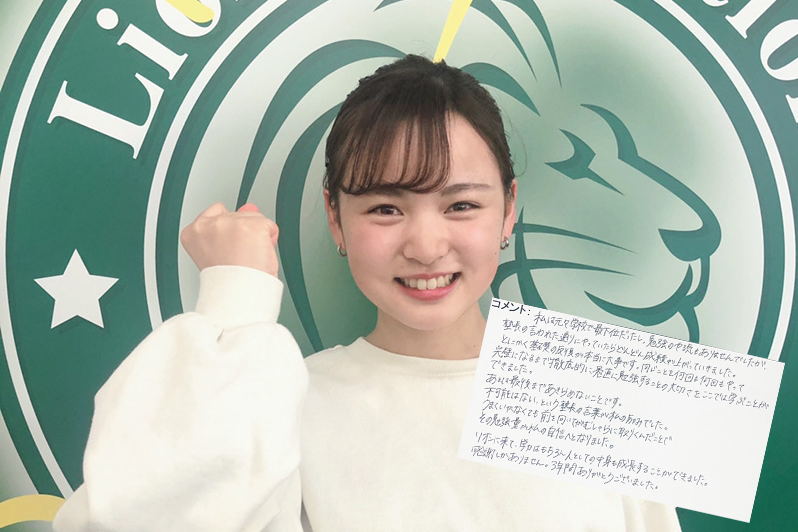 Lio
elor
コメント:
私は元々学校で最下位だったし、勉強のやり方もありませんでしたが
塾長の言われた通りにやっていたらどんどん成績が上がっていきました。
とにかく基礎の反復が本当に大事です。同じことを何回も何回もやって
完璧になるまで徹底的に愚直に勉強することの大切さをここでは学ぶことが
できました。
あとは最後まであきらめないことです。
不可能はない、という塾長の言葉が私の励みでした。
うまくいかなくても前を向いてがむしゃらに取りくんだことで
その勉強量が私の自信へとなりました。
リオンに来て、学力はもちろん人としての中身も成長することができました。
感謝しかありません。3年間ありがとうございました。